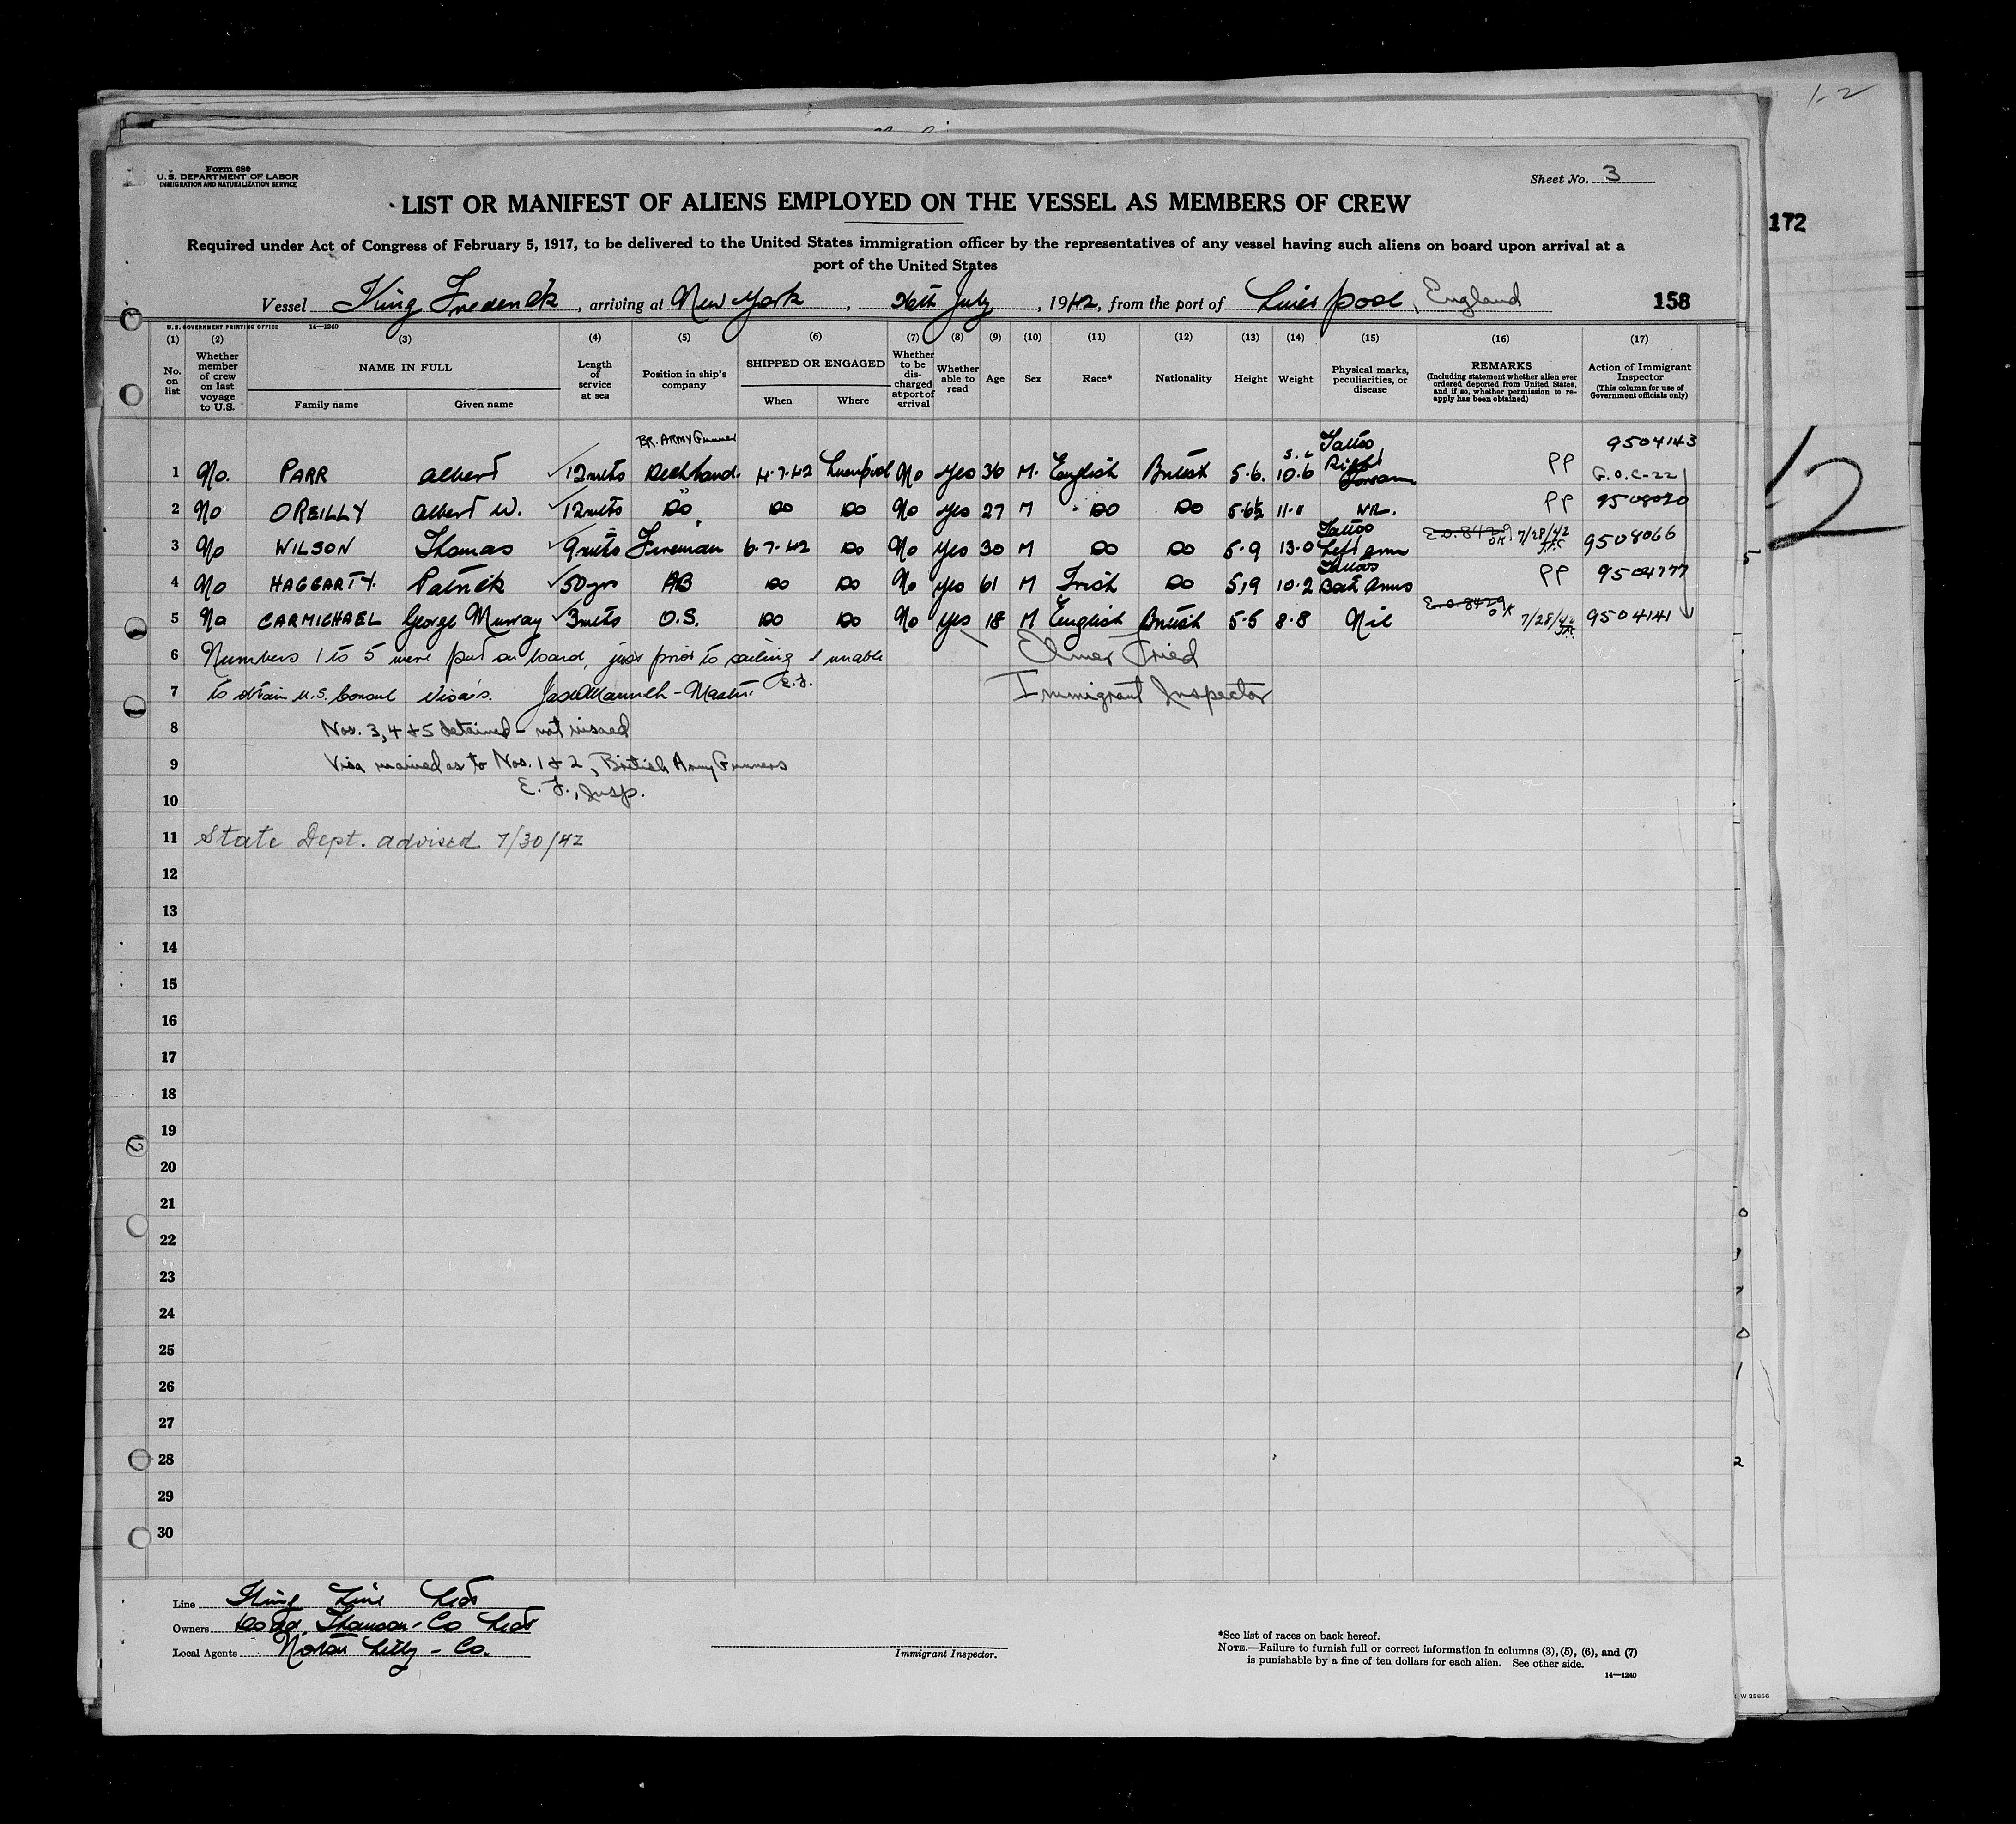 1-2
172
12
Form 680
U. S. DEPARTMENT OF LABOR
IMMIGRATION AND NATURALIZATION SERVICE
Sheet No. 3
LIST OR MANIFEST OF ALIENS EMPLOYED ON THE VESSEL AS MEMBERS OF CREW
Required under Act of Congress of February 5, 1917, to be delivered to the United States immigration officer by the representatives of any vessel having such aliens on board upon arrival at a
port of the United States
Vessel King Frederick, arriving at New York, 26th July, 1942, from the port of Liverpool, England 158
U. S. GOVERNMENT PRINTING OFFICE 14—1240
(1) (2) (3) (4) (5) (6) (7) (8) (9) (10) (11) (12) (13) (14) (15) (16) (17)
No. on list
Whether member of crew on last voyage to U.S.
NAME IN FULL
Family name Given name
Length of service at sea
Position in ship's company
SHIPPED OR ENGAGED
When Where
Whether to be discharged at port of arrival
Whether able to read
Age
Sex
Race*
Nationality
Height
Weight
Physical marks, peculiarities, or disease
REMARKS
(Including statement whether alien ever ordered deported from United States, and if so, whether permission to reapply has been obtained)
Action of Immigrant Inspector
(This column for use of Government officials only)
BR. ARMY Gunner Tattoo 9504143
1 No. PARR Albert 12 mths Deckhand. 4.7.42 Liverpool No Yes 36 M. English British 5.6. 10.6 Right Forearm PP G.O.C-22
2 No OREILLY Albert W. 12 mths Do Do Do No Yes 27 M Do Do 5.6½ 11.0 NIL. PP 9508020
3 No WILSON Thomas 9 mths Fireman 6.7.42 Do No Yes 30 M Do Do 5.9 13.0 Tattoo Left Arm E.O. 8429 OK 7/28/42 9508066
4 No HAGGARTY. Patrick 50 yrs AB Do Do No Yes 61 M Irish Do 5.9 10.2 Tattoos Both Arms PP 9504777
5 No CARMICHAEL George Murray 3 mths O.S. Do Do No Yes 18 M English British 5.5 8.8 Nil E.O. 8429 OK 7/28/42 9504141
6 Numbers 1 to 5 were put on board, just prior to sailing & unable Elmer Fried
7 to obtain U.S. Consul Visa's. Master. E.F. Immigrant Inspector
8 Nos. 3, 4 & 5 detained - not visaed
9 Visa waived as to Nos. 1 & 2, British Army Gunners
E. F., Insp.
10
11 State Dept. advised 7/30/42
12
13
14
15
16
17
18
19
20
21
22
23
24
25
26
27
28
29
30
Line King Line Ltd
Owners Dodd, Thomson - Co Ltd
Local Agents Norton Lilly - Co.
Immigrant Inspector.
*See list of races on back hereof.
NOTE.—Failure to furnish full or correct information in columns (3), (5), (6), and (7)
is punishable by a fine of ten dollars for each alien. See other side.
14—1240
W 25656